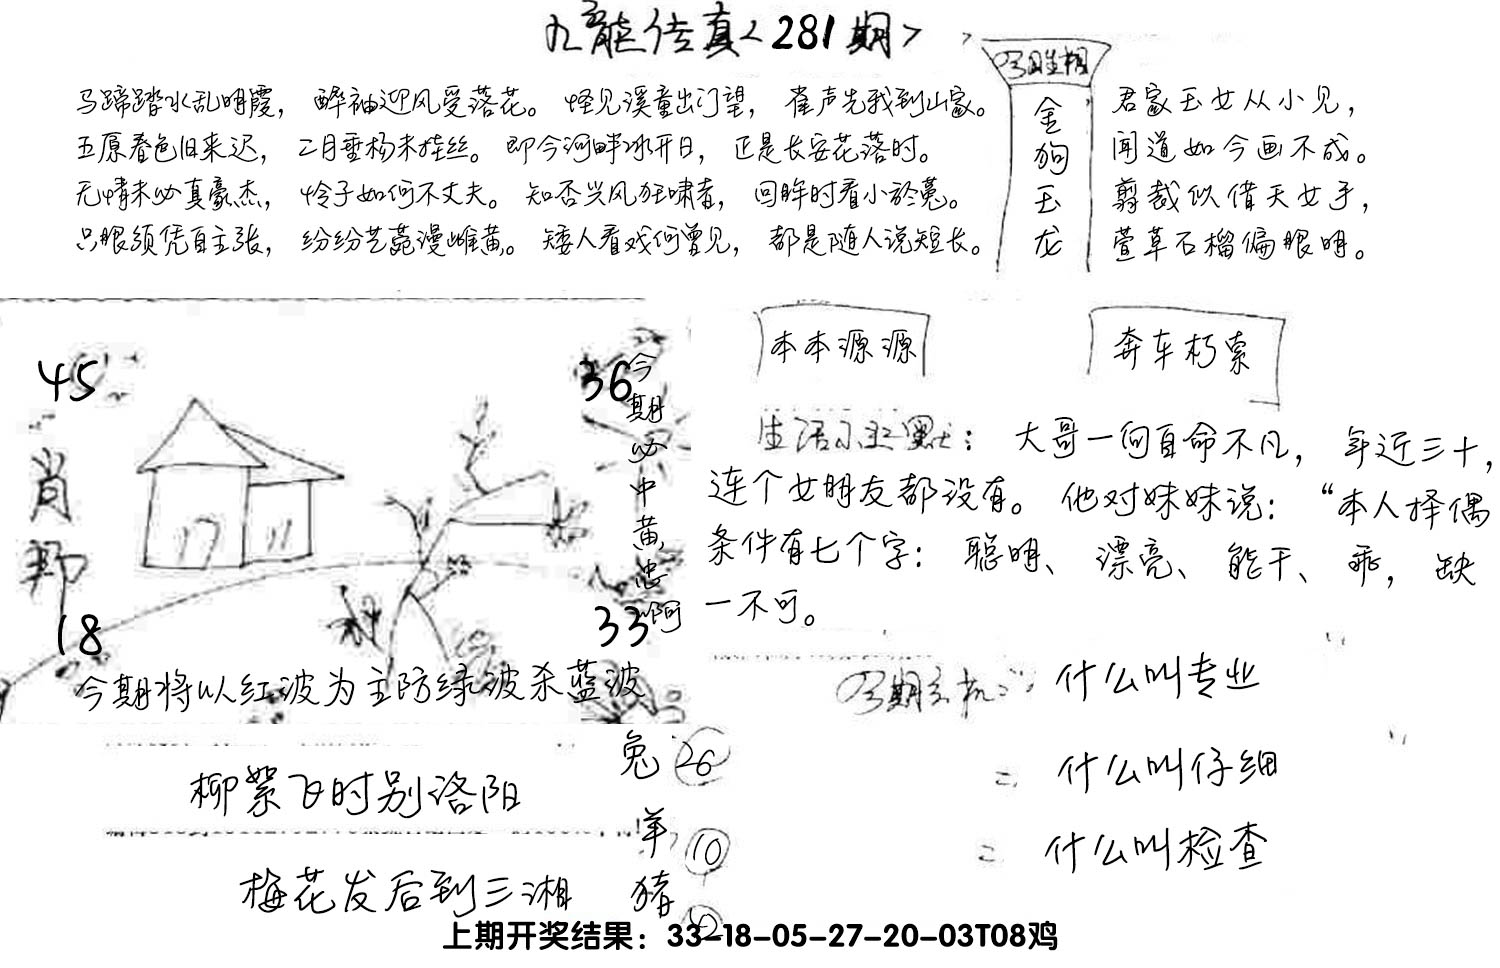 九龙传真<281期>
马蹄踏水乱明霞，醉袖迎风受落花。怪见溪童出门望，雀声先我到山家。
五原春色旧来迟，二月垂杨未挂丝。即今河畔冰开日，正是长安花落时。
无情未必真豪杰，怜子如何不丈夫。知否兴风狂啸者，回眸时看小於菟。
只眼须凭自主张，纷纷艺苑漫雌黄。矮人看戏何曾见，都是随人说短长。
金狗玉龙
君家玉女从小见，
闻道如今画不成。
剪裁似借天女手，
萱草石榴偏眼明。
45
36
肖
18
33
今期必中黄忠啊
今期将以红波为主防绿波杀蓝波
本本源源
奔车朽索
生活小幽默：大哥一向自命不凡，年近三十，
连个女朋友都没有。他对妹妹说：“本人择偶
条件有七个字：聪明、漂亮、能干、乖，缺
一不可。
什么叫专业
二 什么叫仔细
二 什么叫检查
柳絮飞时别洛阳
梅花发后到三湘
兔 26
羊 10
猪
上期开奖结果：33-18-05-27-20-03T08鸡